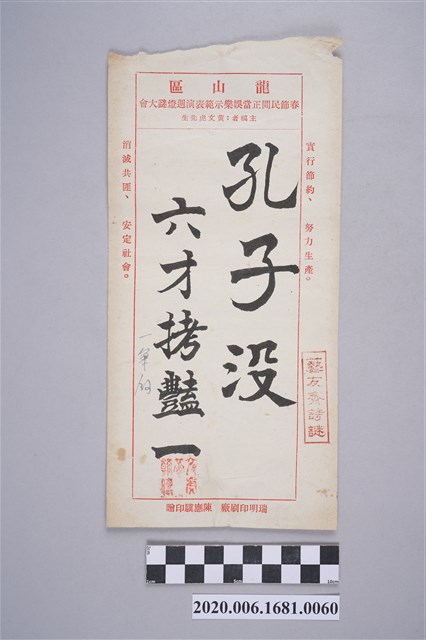 龍山區
春節民間正當娛樂示範表演週燈謎大會
主稿者：黃文虎先生
實行節約、努力生產。
孔子没
六才拷豔一
一單酩
消滅共匪、安定社會。
藝友齋詩謎
瑞明印刷廠 陳應麟印贈
0cm 5cm 10cm
2020.006.1681.0060